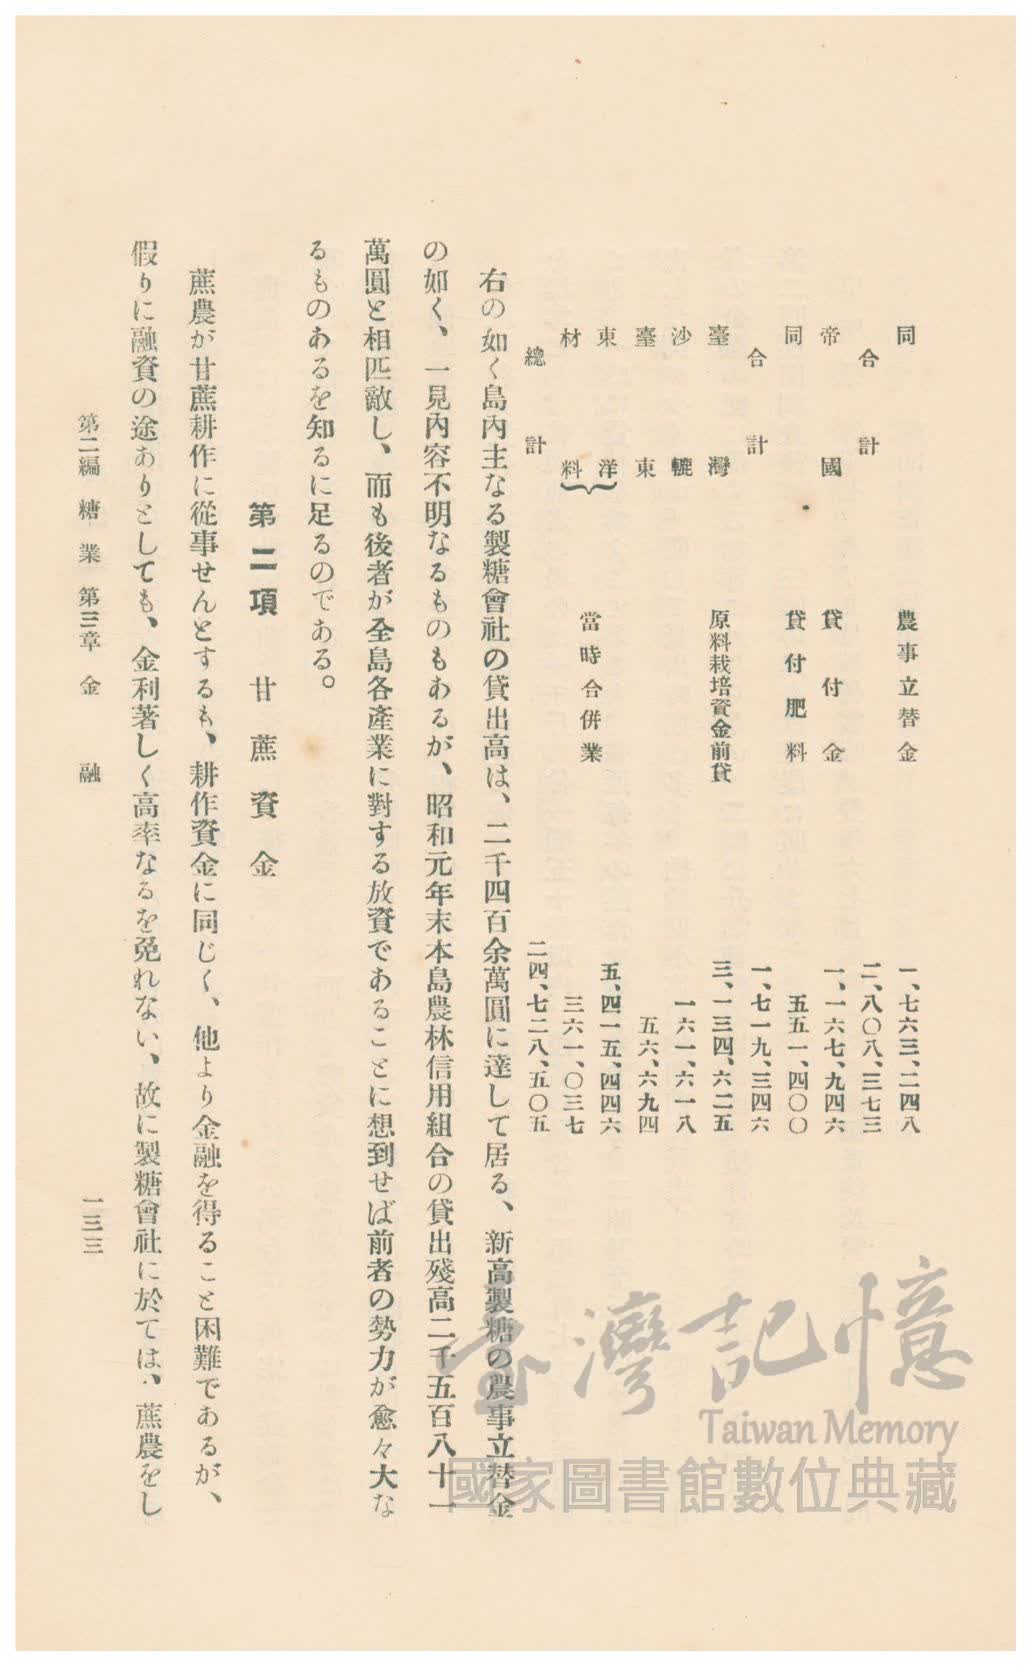 同　農事立替金　一、七六三、二四八
合計　二、八〇八、三七三
帝國　貸付金　一、一六七、九四六
同　貸付肥料　五五一、四〇〇
合計　一、七一九、三四六
臺灣　原料栽培資金前貸　三、一三四、六二五
沙轆　一六一、六一八
臺東　五六、六九四
東洋　當時合併業　五、四一五、四四六
材料　三六一、〇三七
總計　二四、七二八、五〇五
右の如く島內主なる製糖會社の貸出高は、二千四百余萬圓に達して居る、新高製糖の農事立替金
の如く、一見內容不明なるものもあるが、昭和元年末本島農林信用組合の貸出殘高二千五百八十一
萬圓と相匹敵し、而も後者が全島各產業に對する放資であることに想到せば前者の勢力が愈々大な
るものあるを知るに足るのである。
第二項　甘蔗資金
蔗農が甘蔗耕作に從事せんとするも、耕作資金に同じく、他より金融を得ること困難であるが、
假りに融資の途ありとしても、金利著しく高率なるを免れない、故に製糖會社に於ては、蔗農をし
第二編　糖業　第三章　金融　一三三
臺灣記憶
Taiwan Memory
國家圖書館數位典藏